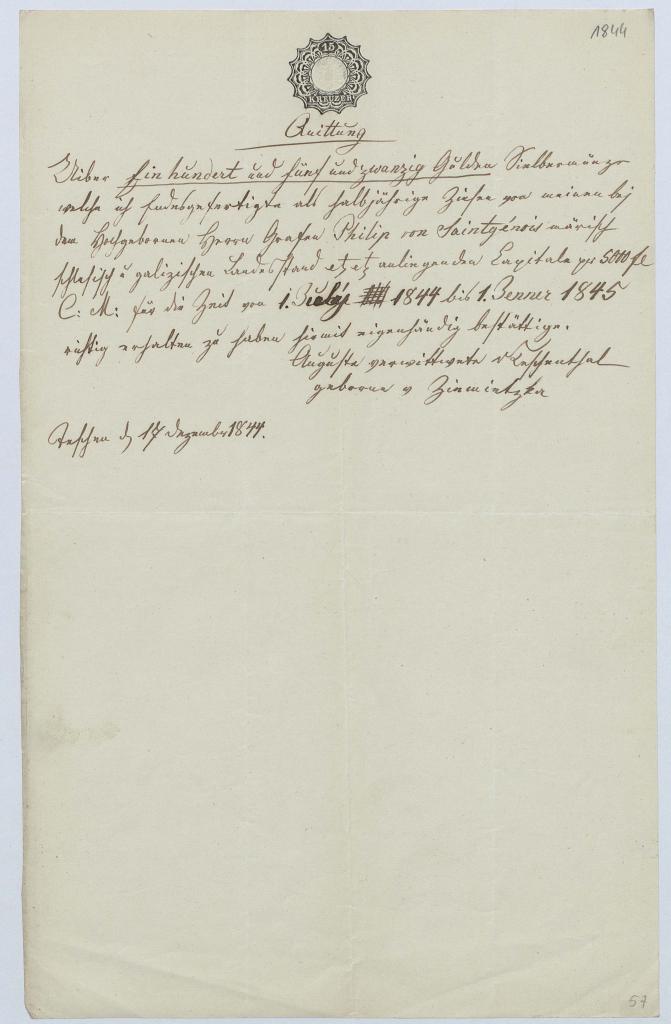 1844
15
KREUZER
Quittung
Uiber Ein hundert und fünf und zwanzig Gulden Silbermünze
welche ich Endesgefertigte als halbjährige Ziesen von meinen bej
dem Hochgebornen Herrn Grafen Philip von Saintgénois märisch
schlesisch u galizischen Landesstand etz etz anliegenden Capitale pr 5000 fl
C: M: für die Zeit von 1. July 1844 bis 1. Jenner 1845
richtig erhalten zu haben hiemit eigenhändig bestättige.
Auguste verwittwete v Teschenthal
geborne v Ziemietzka
Teschen d 17 Dezember 1844.
57